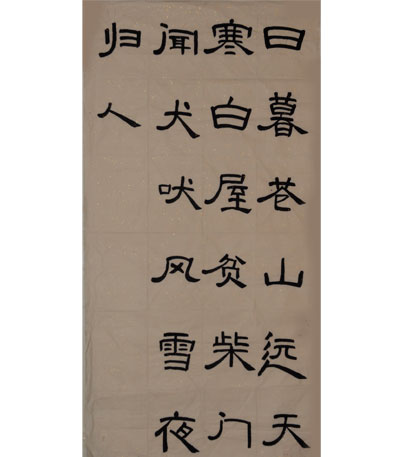 日暮苍山远天
寒白屋贫柴门
闻犬吠风雪夜
归人